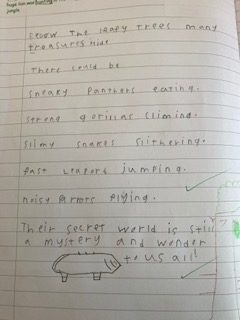 huge lion was hunting in
jungle
Below The leafy Trees many
treasures hide
There could be
sneaky Panthers eating.
strong gorillas climing.
slimy snakes slithering.
fast leapord jumping.
noisy parrots flying.
Their secret world is still
a mystery and wonder
to us all!